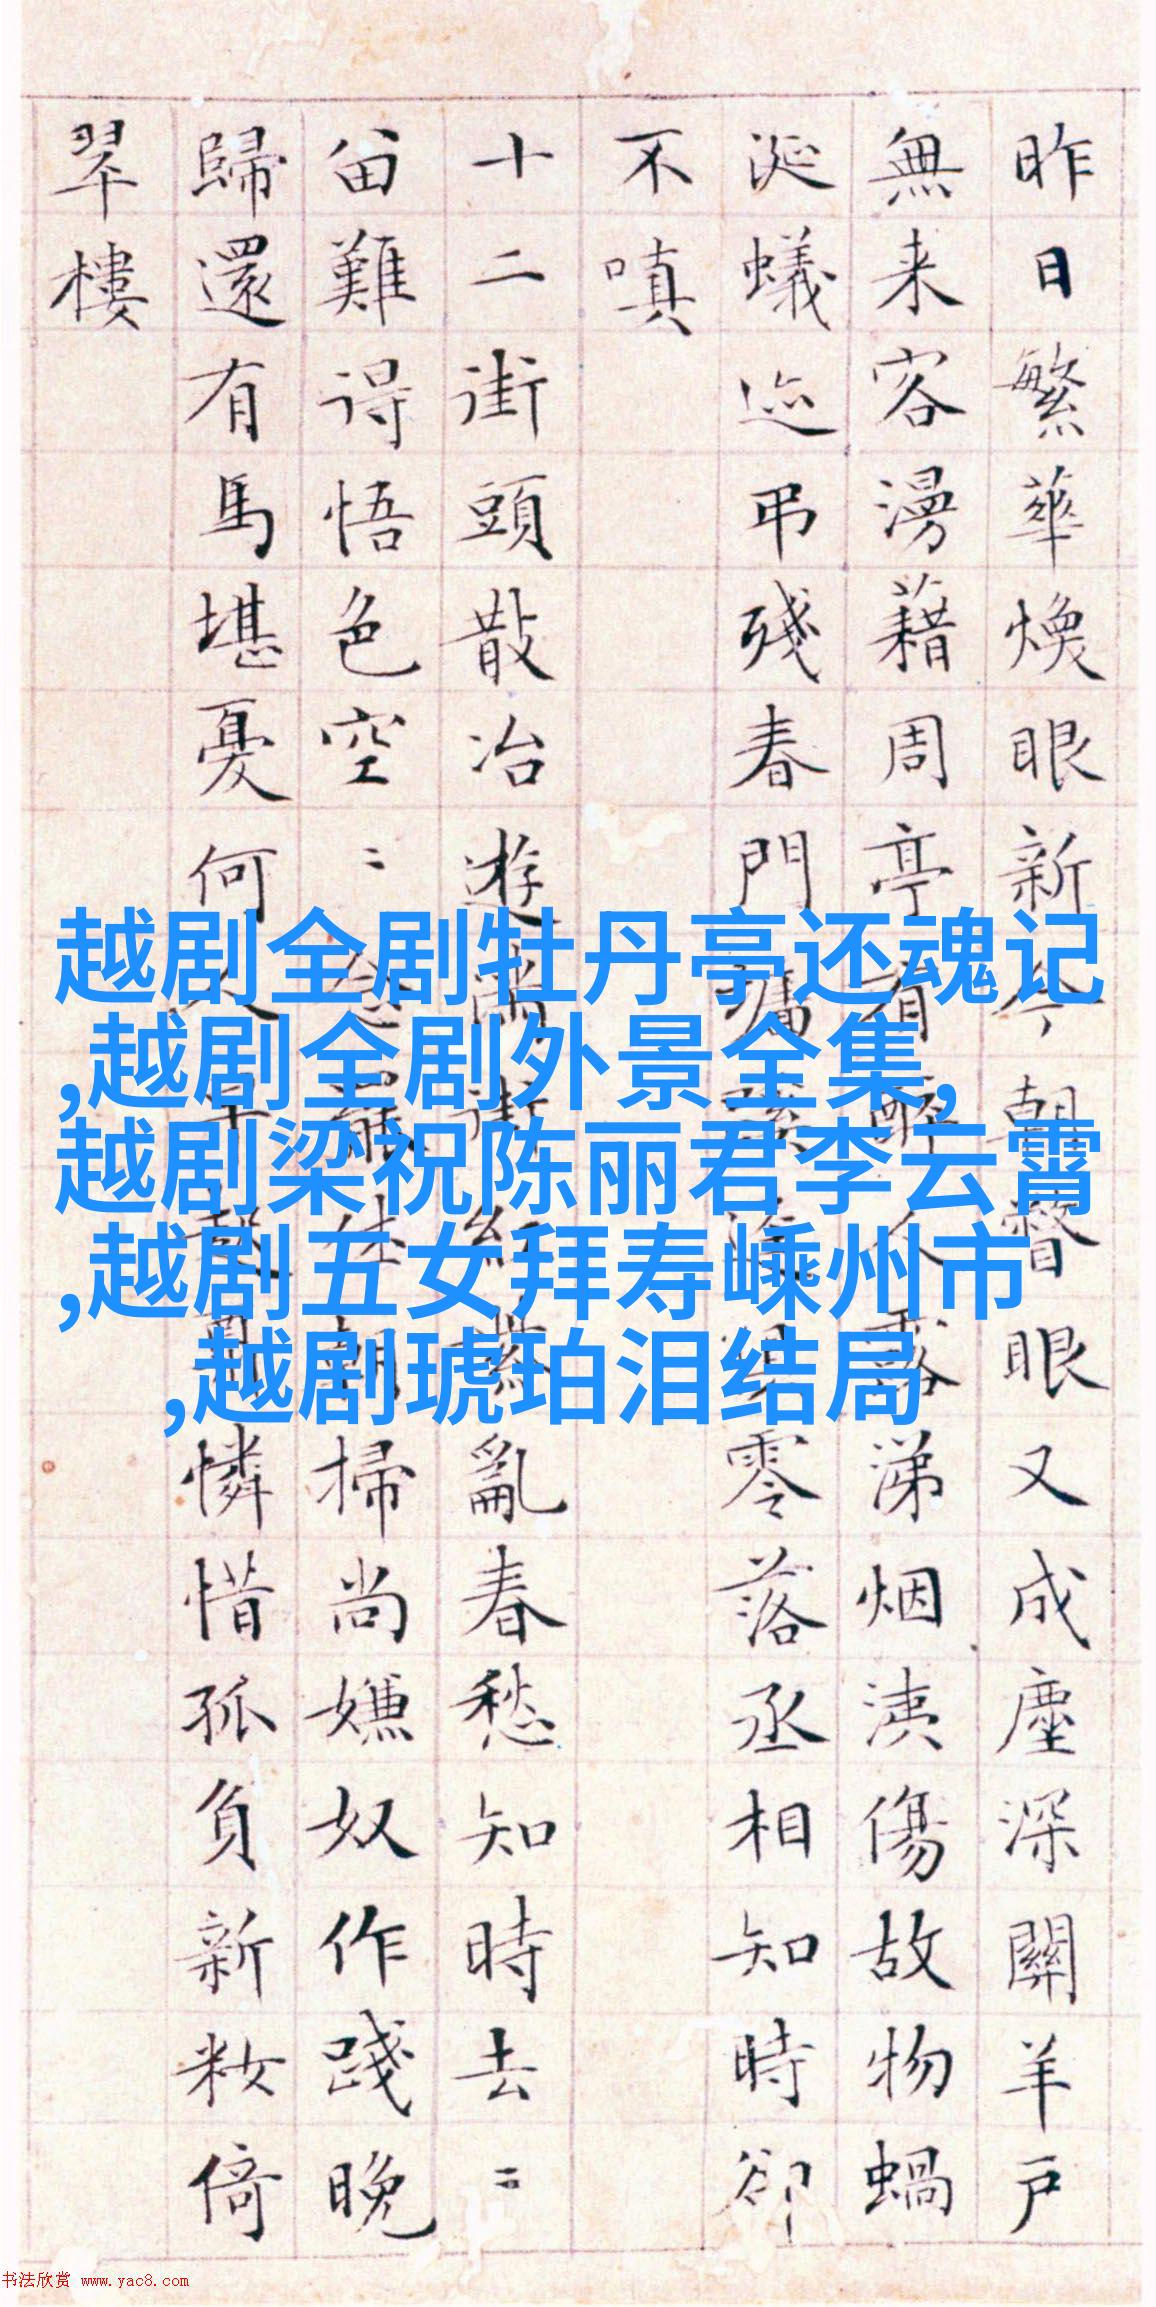 昨日繁華煥眼新今朝瞥眼又成塵深關羊戶
無来客漫藉周亭有醉人露涕烟洟傷故物蝸
涎蟻迹弔殘春門零落丞相知時卻
不嗔
十二街頭散冶遊滿街紅紫亂春愁知時去〻
畱難得悟色空〻休朝掃尚嫌奴作踐晚
歸還有馬堪憂何人憐惜孤負新粧倚
翠樓
越剧全剧牡丹亭还魂记
,越剧全剧外景全集,
越剧梁祝陈丽君李云霄
,越剧五女拜寿嵊州市
,越剧琥珀泪结局
书法欣赏 www.yac8.com